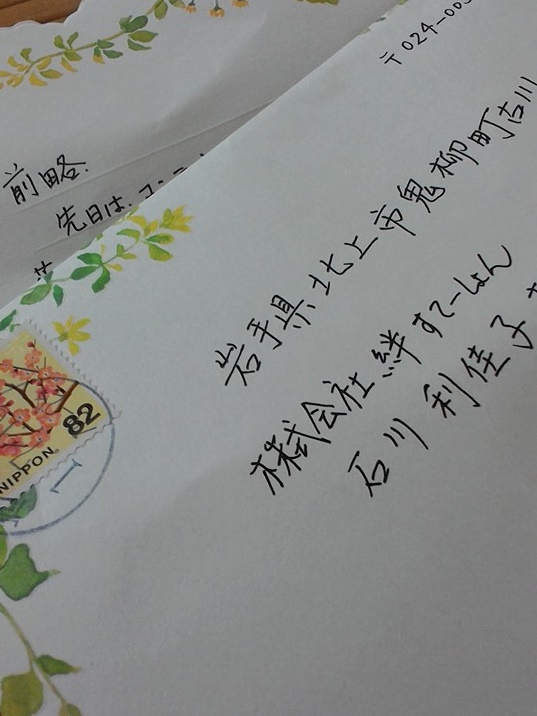 〒024-005
岩手県北上市鬼柳町古川
株式会社 絆 すてーしょん
石川 利佳子
前略.
先日は、
82
NIPPON